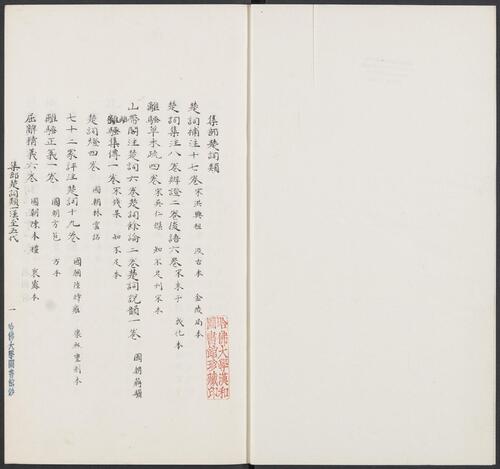 集部楚詞類
楚詞補注十七卷 宋洪興祖 汲古本 金陵局本
楚詞集注八卷辨證二卷後語六卷 宋朱子 成化本
離騷草木疏四卷 宋吳仁傑 知不足刊宋本
山帶閣注楚詞六卷楚詞餘論二卷楚詞說韻一卷 國朝蔣驥
離騷集傳一卷 宋錢杲 知不足本
楚詞燈四卷 國朝林雲銘
七十二家評注楚詞十九卷 國朝陸時雍 重刻本
離騷正義一卷 國朝方苞 方本
屈辭精義六卷 國朝陳本禮 裛露本
集部楚詞類 漢至五代
一
哈佛大學圖書館鈔
哈佛大學漢和
圖書館珍藏印